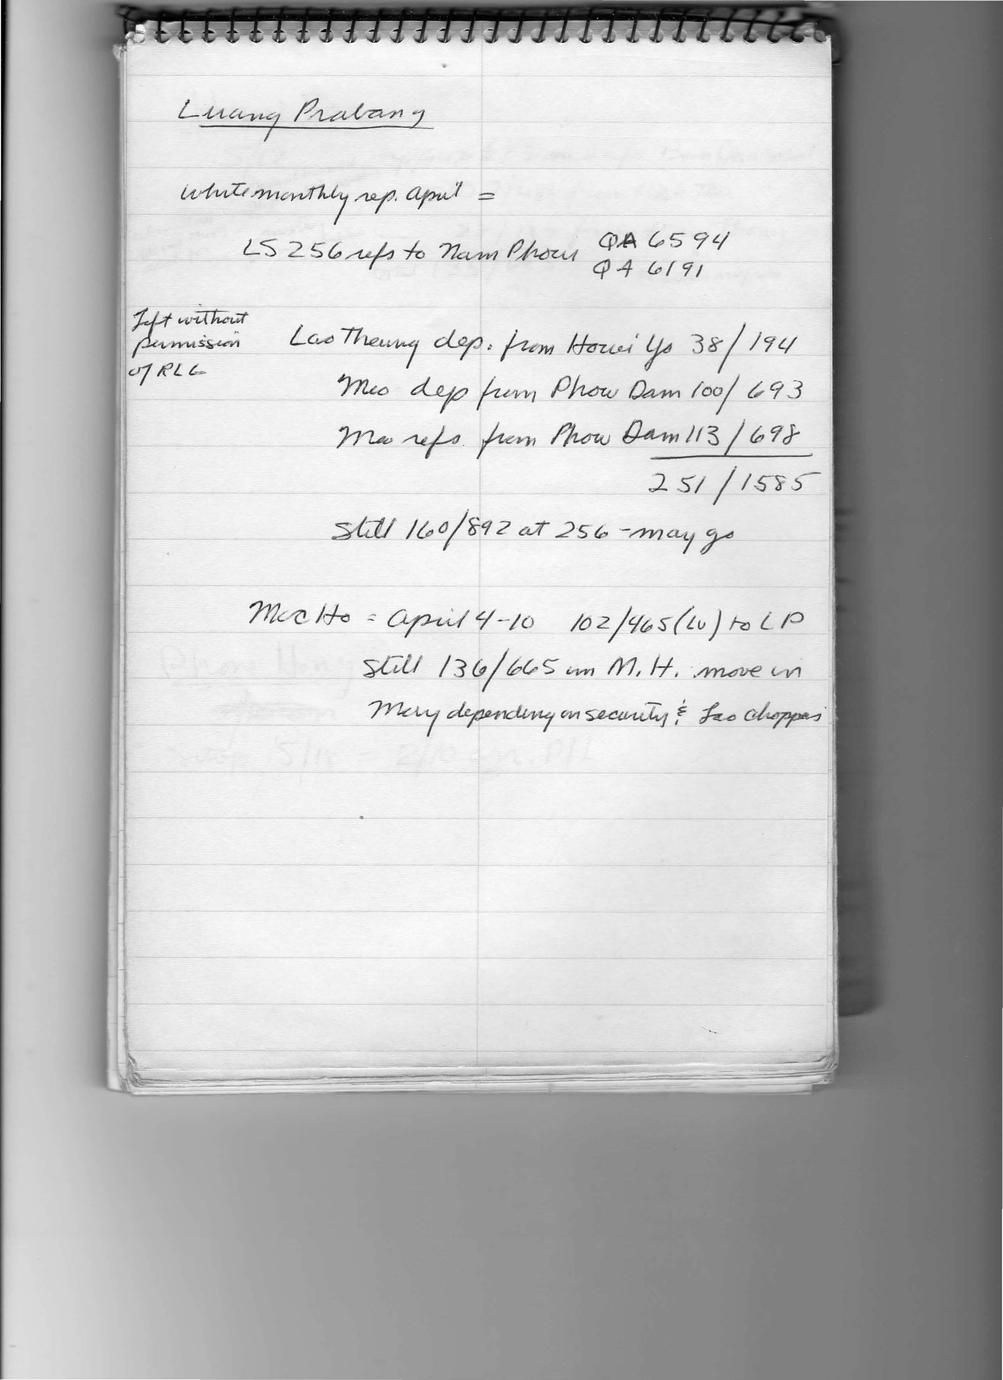 Luang Prabang
White monthly rep. April =
LS 256 refs to Nam Phoui QA 6594
QA 6191
left without
permission
of RLG
Lao Theung dep. from Houei Yo 38/194
Meo dep from Phou Dam 100/693
Meo refs. from Phou Dam 113/698
251/1585
Still 160/892 at 256 - may go
Moc Ho = April 4-10 102/465 (Lu) to LP
Still 136/665 in M.H. move in
May depending on security & Lao choppers